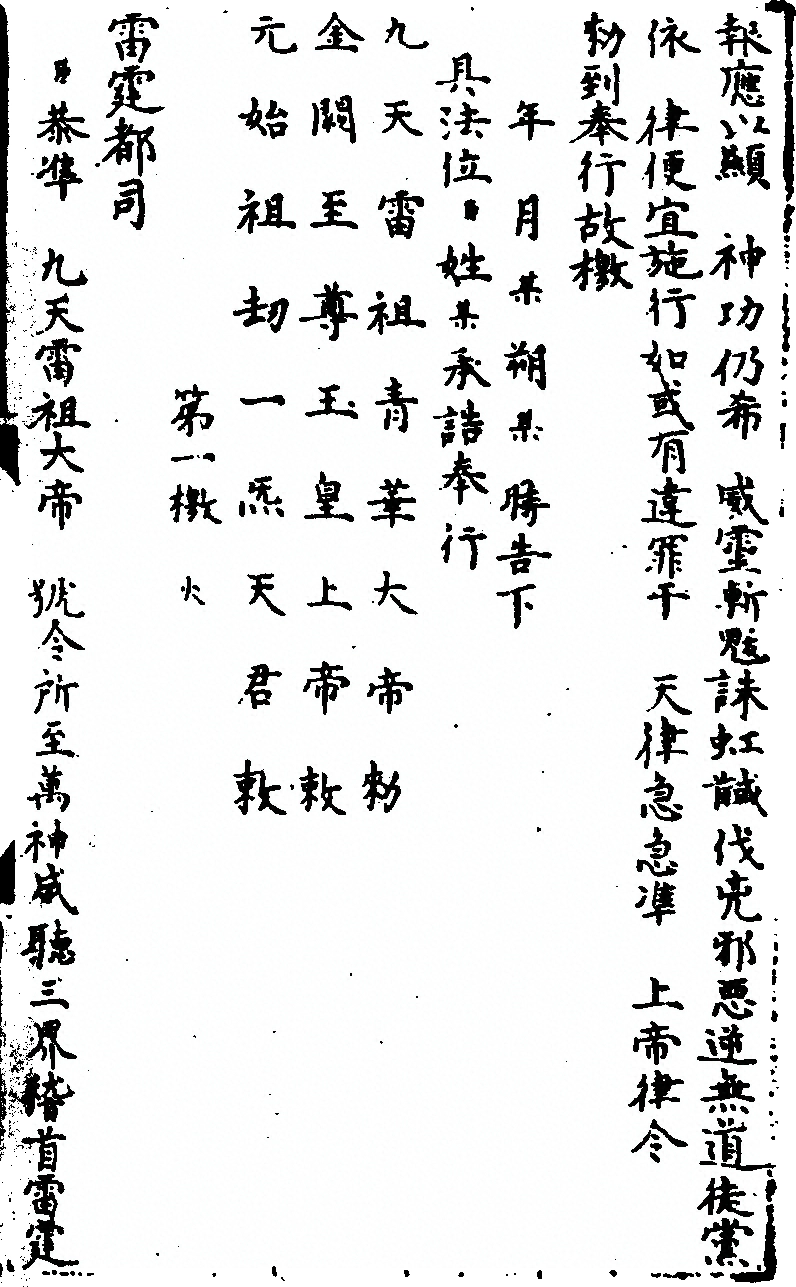 報應以顯　神功仍希　威靈斬魃誅虹馘伐兇邪惡逆無道徒黨
依　律便宜施行如或有違罪干　天律急急準　上帝律令
勑到奉行故檄
年月某朔某勝告下
具法位姓某承誥奉行
九天雷祖青華大帝勑
金闕至尊玉皇上帝敕
元始祖劫一炁天君敕
第一檄　火
雷霆都司
恭準　九天雷祖大帝　號令所至萬神咸聽三界稽首雷霆